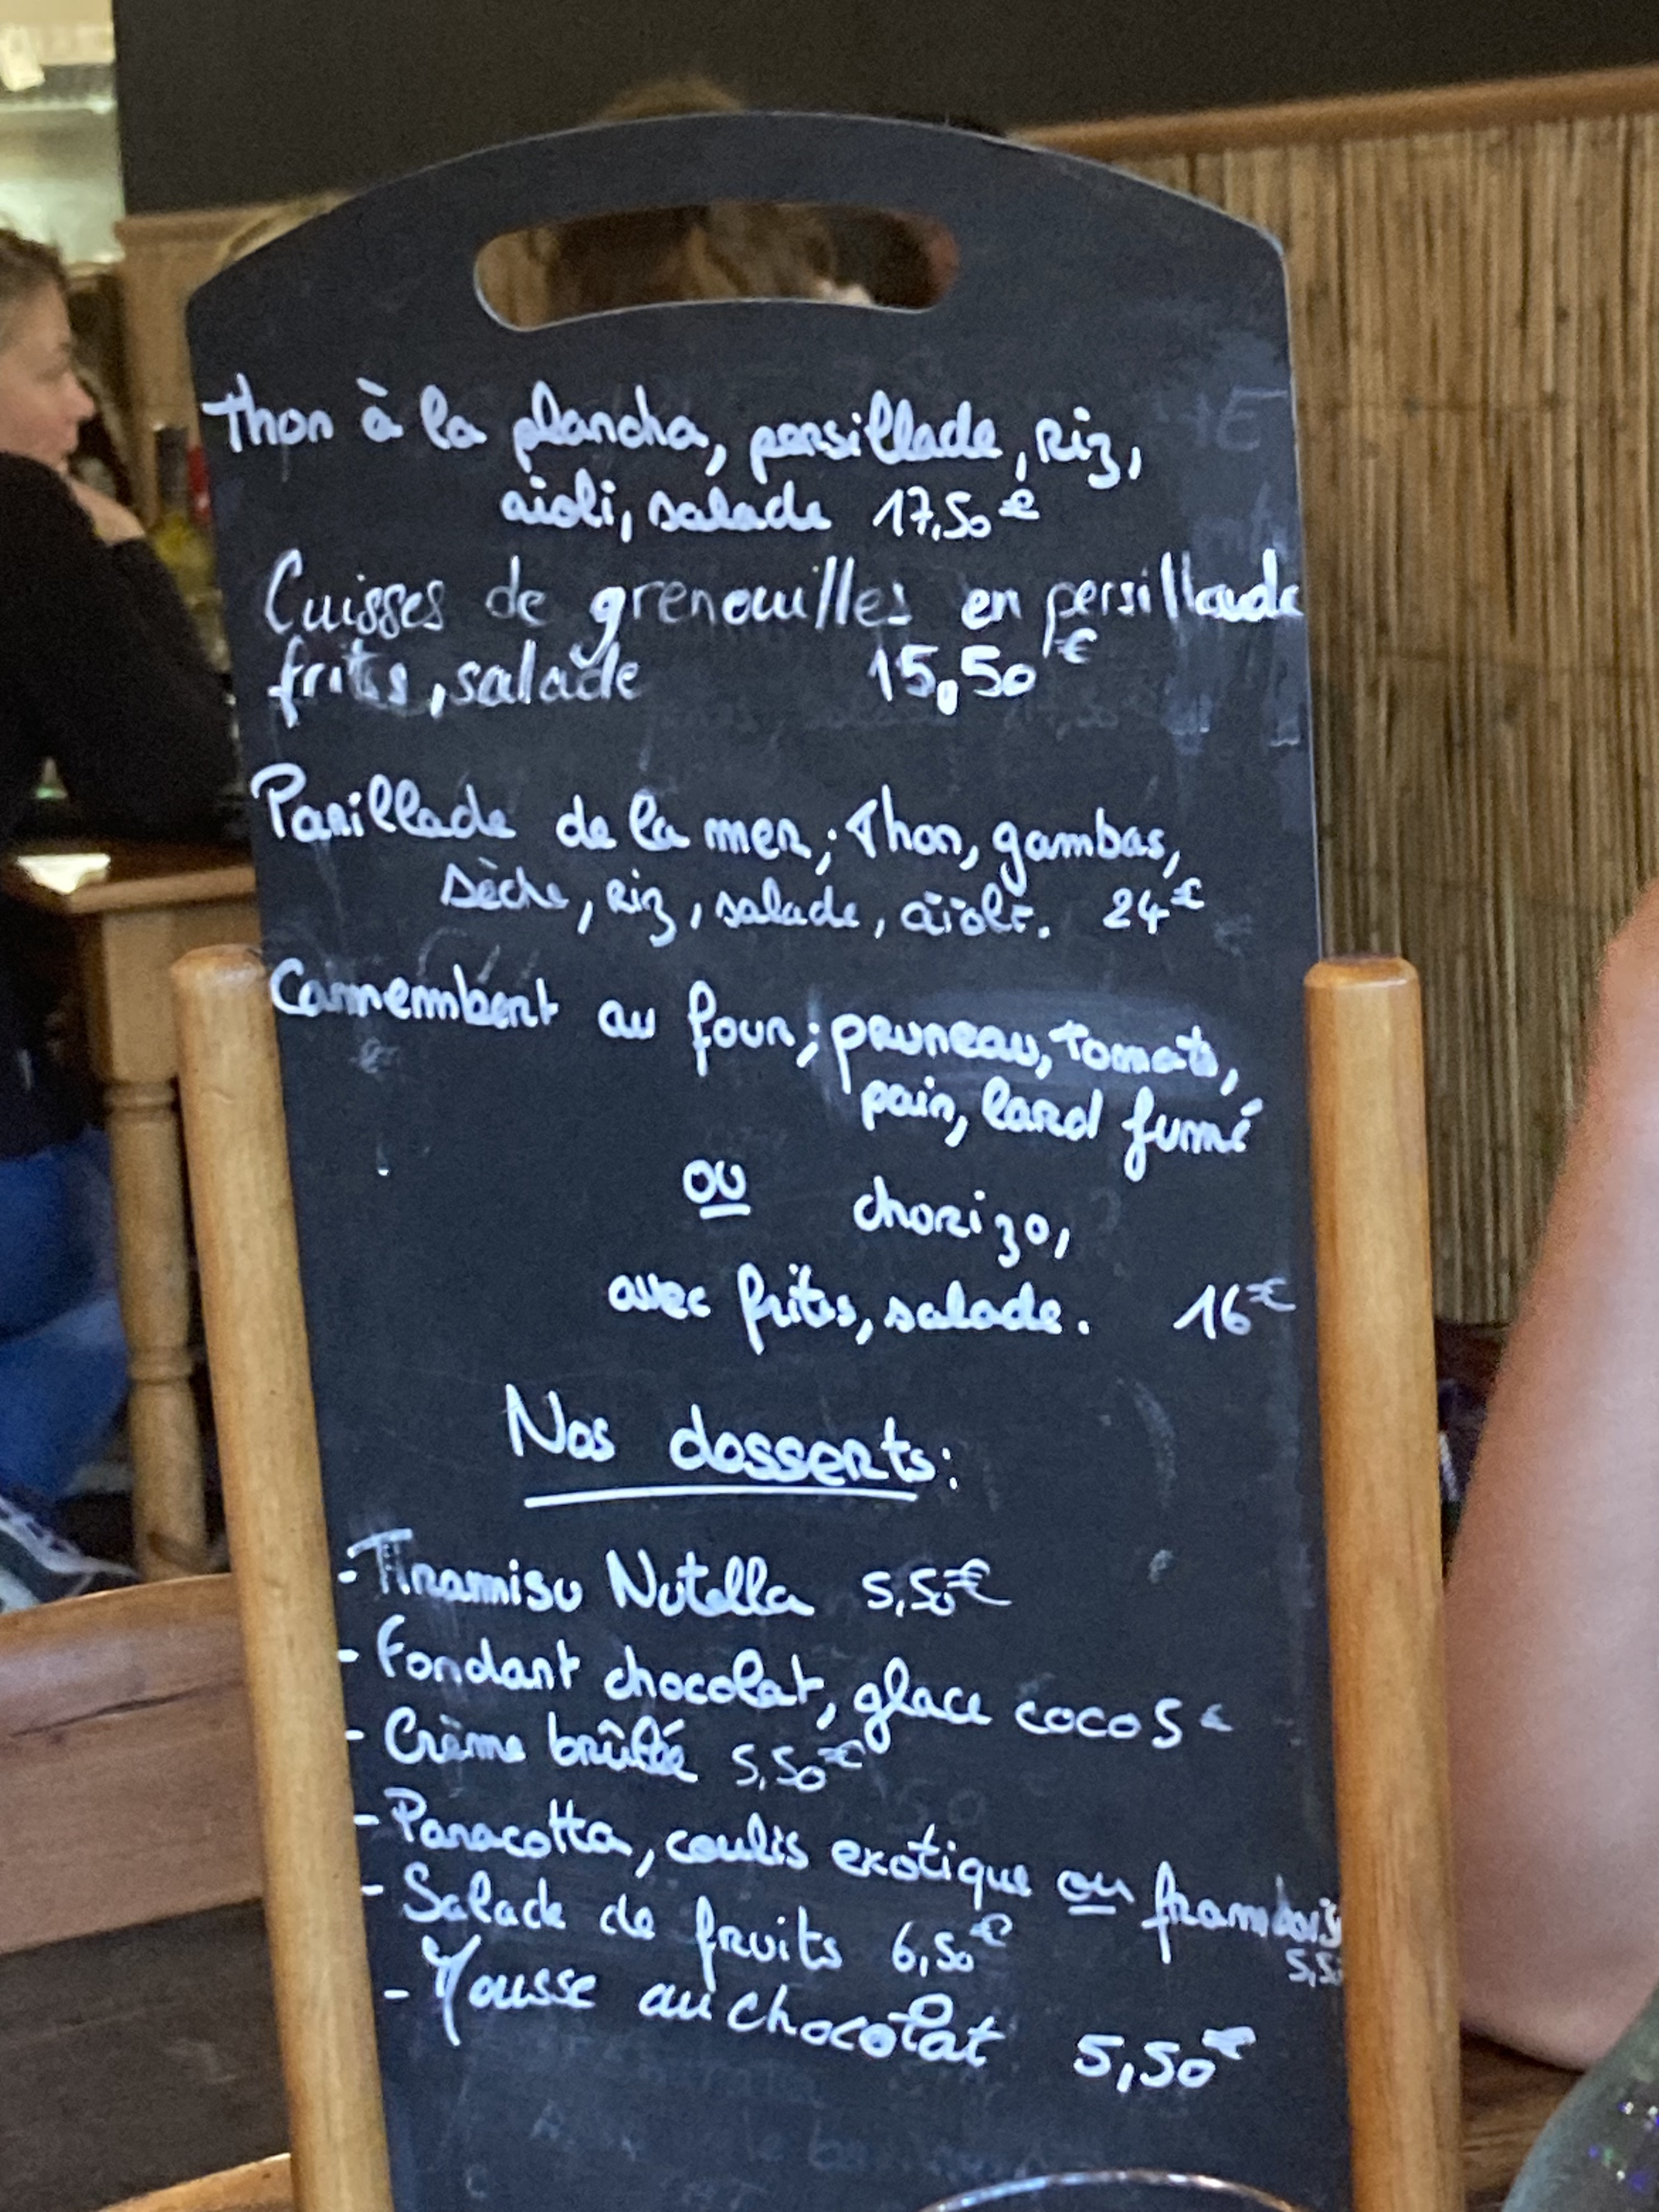 Thon à la plancha, persillade, Riz,
aioli, salade 17,50€
Cuisses de grenouilles en persillade
frites, salade 15,50€
Parillade de la mer; Thon, gambas,
sèche, riz, salade, aïoli. 24€
Camembert au four; pruneau, tomate,
pain, lard fumé
ou chorizo,
avec frites, salade. 16€
Nos desserts:
- Tiramisu Nutella 5,50€
- Fondant chocolat, glace coco 5€
- Crème brûlée 5,50€
- Panacotta, coulis exotique ou framboise
5,50
- Salade de fruits 6,50€
- Mousse au chocolat 5,50€